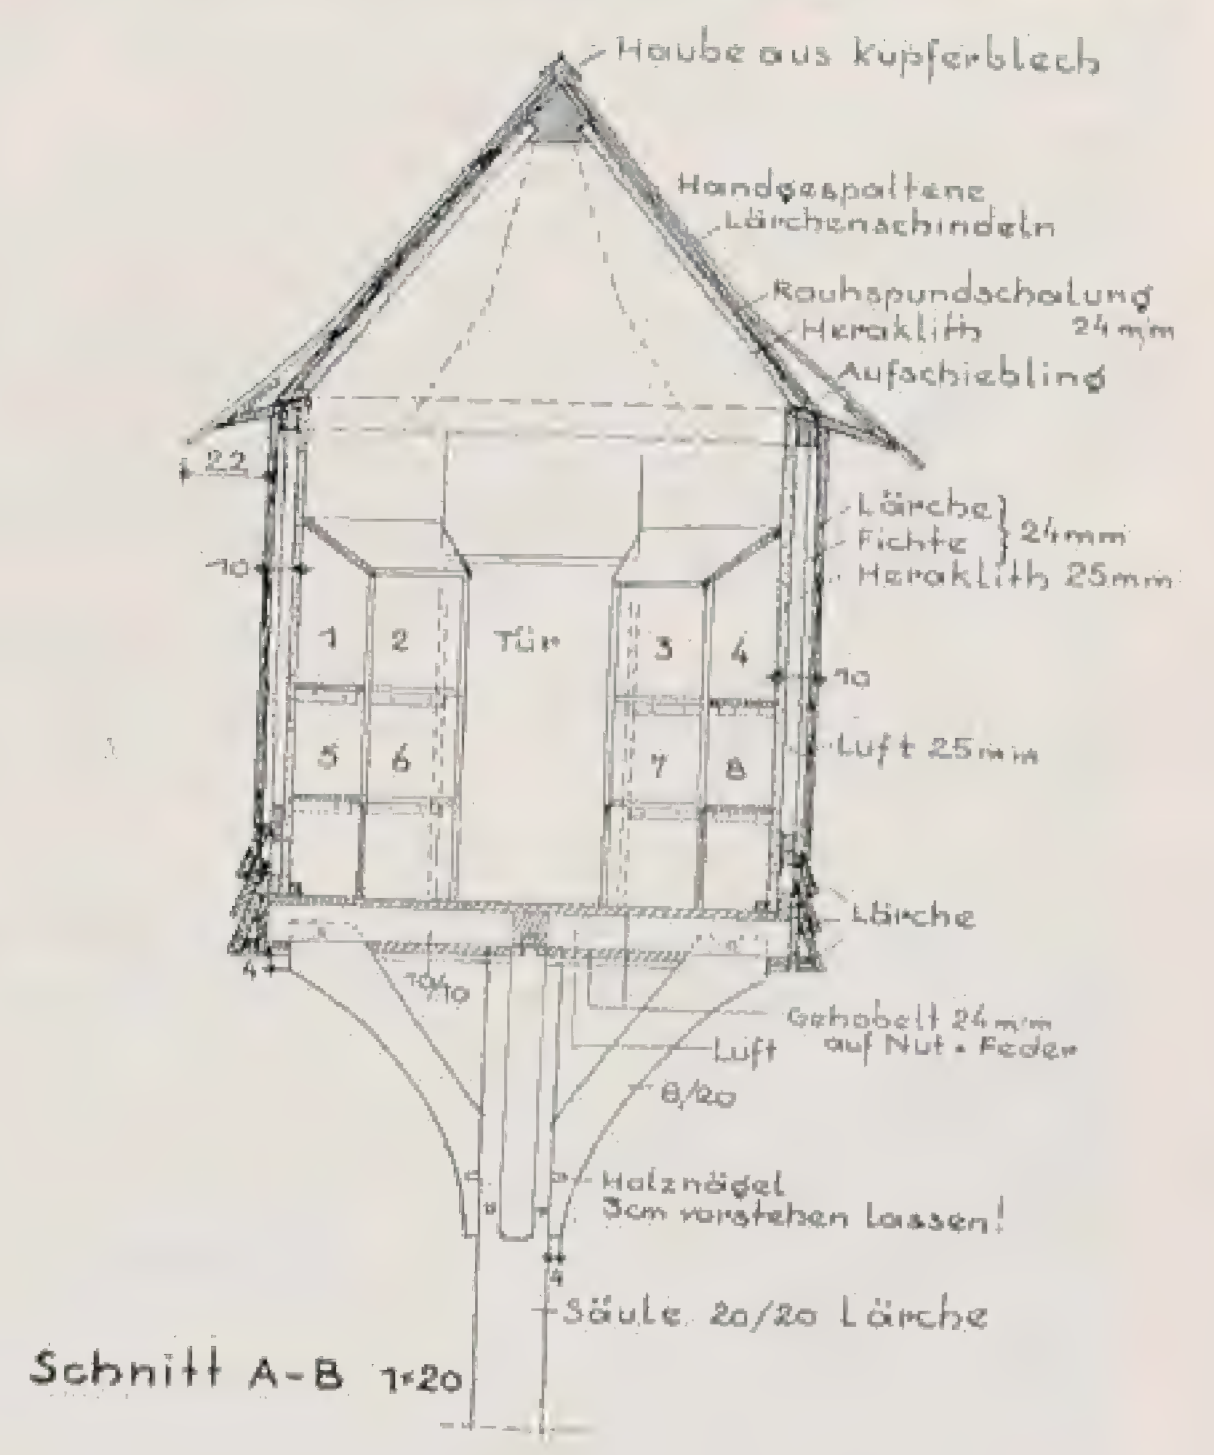 Haube aus Kupferblech
Handgespaltene
Lärchenschindeln
Rauhspundschalung
Heraklith 24mm
Aufschiebling
22
Lärche
Fichte } 24mm
Heraklith 25mm
10
1 2 Tür 3 4
10
Luft 25mm
5 6 7 8
Lärche
4
10/10
Gehobelt 24mm
auf Nut + Feder
Luft
8/20
Holznägel
3cm vorstehen lassen!
4
Säule 20/20 Lärche
Schnitt A-B 1:20